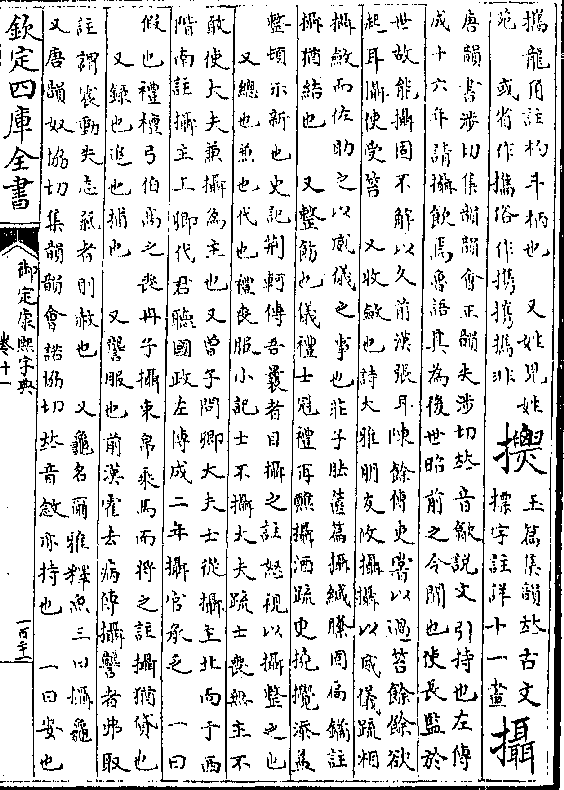 攜龍角註杓斗柄也　又姓見姓
苑　或省作㩗俗作携㩦擕非
𢶉
玉篇集韻𠀤古文
摽字註詳十一畫
攝
唐韻書涉切集韻韻會正韻失涉切𠀤音歙說文引持也左傳
成十六年請攝飲焉魯語其為後世昭前之令聞也使長監於
世故能攝固不解以久前漢張耳陳餘傳吏嘗以過笞餘餘欲
起耳攝使受笞　又收斂也詩大雅朋友攸攝攝以威儀疏相
攝斂而佐助之以威儀之事也莊子胠篋篇攝緘縢固扃鐍註
攝猶結也　又整飭也儀禮士冠禮再醮攝酒疏更撓攪添為
整頓示新也史記荆軻傳吾曩者目攝之註怒視以攝整之也
又總也兼也代也禮喪服小記士不攝大夫疏士喪無主不
敢使大夫兼攝為主也又曾子問卿大夫士從攝主北面于西
階南註攝主上卿代君聽國政左傳成二年攝官承乏　一曰
假也禮檀弓伯高之喪冉子攝束帛乘馬而將之註攝猶貸也
又錄也追也捕也　又讋服也前漢霍去病傳攝讋者弗取
註謂裳動失志氣者則赦也　又龜名爾雅釋魚三曰攝龜
又唐韻奴協切集韻韻會諾協切𠀤音敜亦持也　一曰安也
欽定四庫全書
御定康熙字典
卷十一
一百十二